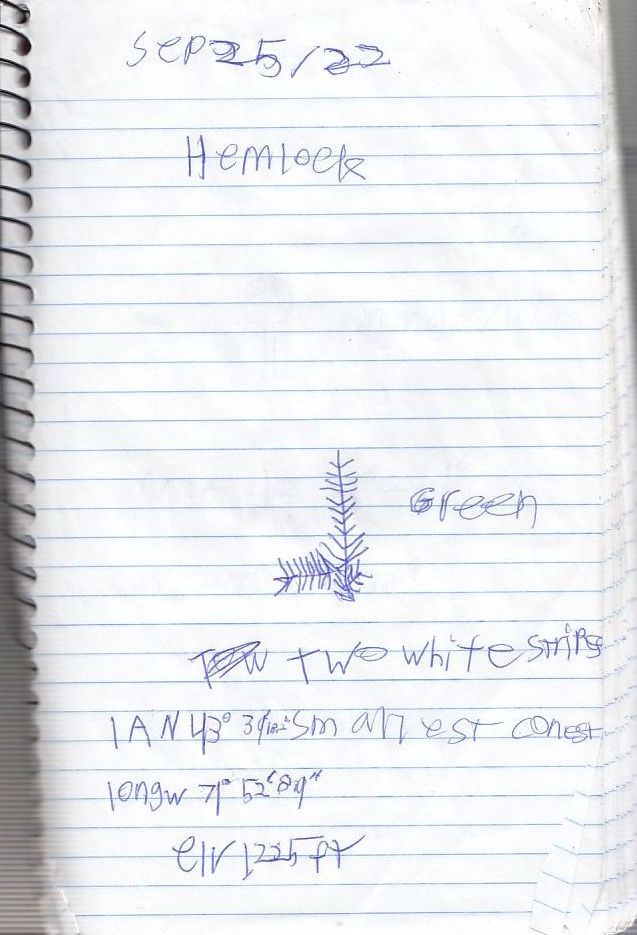 Sep 25/22
Hemlock
Green
two white strips
lAN 43° smallest conest
longw 71° 52'
elv 1225 ft